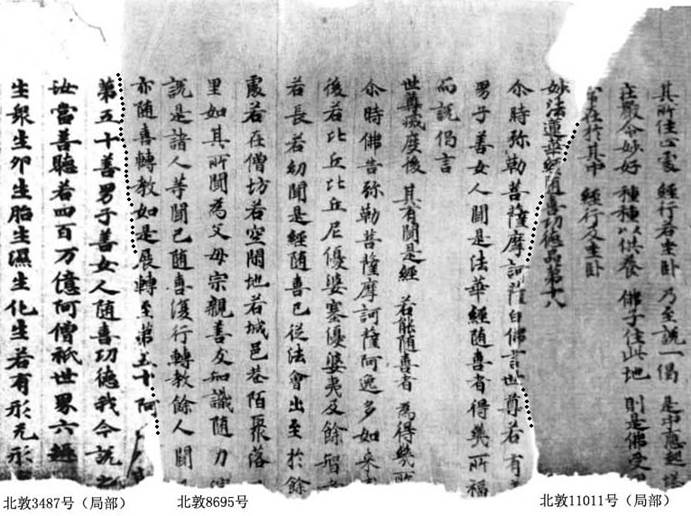 其所住止處 經行若坐卧 乃至說一偈 是中應起塔
庄嚴令妙好 種種以供養 佛子住此地 則是佛受用
常在於其中 經行及坐卧
妙法蓮華經隨喜功德品第十八
尒時弥勒菩薩摩訶薩白佛言世尊若有
男子善女人聞是法華經隨喜者得幾所福
而說偈言
世尊滅度後 其有聞是經 若能隨喜者 為得幾所
尒時佛告弥勒菩薩摩訶薩阿逸多如來
後若比丘比丘尼優婆塞優婆夷及餘智
若長若幼聞是經隨喜已從法會出至於餘
處若在僧坊若空閑地若城邑巷陌聚落
里如其所聞為父母宗親善友知識隨力演
說是諸人等聞已隨喜復行轉教餘人聞
亦隨喜轉教如是展轉至第五十阿
第五十善男子善女人隨喜功德我今說之
汝當善聽若四百万億阿僧祇世界六趣
生眾生卵生胎生濕生化生若有形无形
北敦3487号（局部）
北敦8695号
北敦11011号（局部）